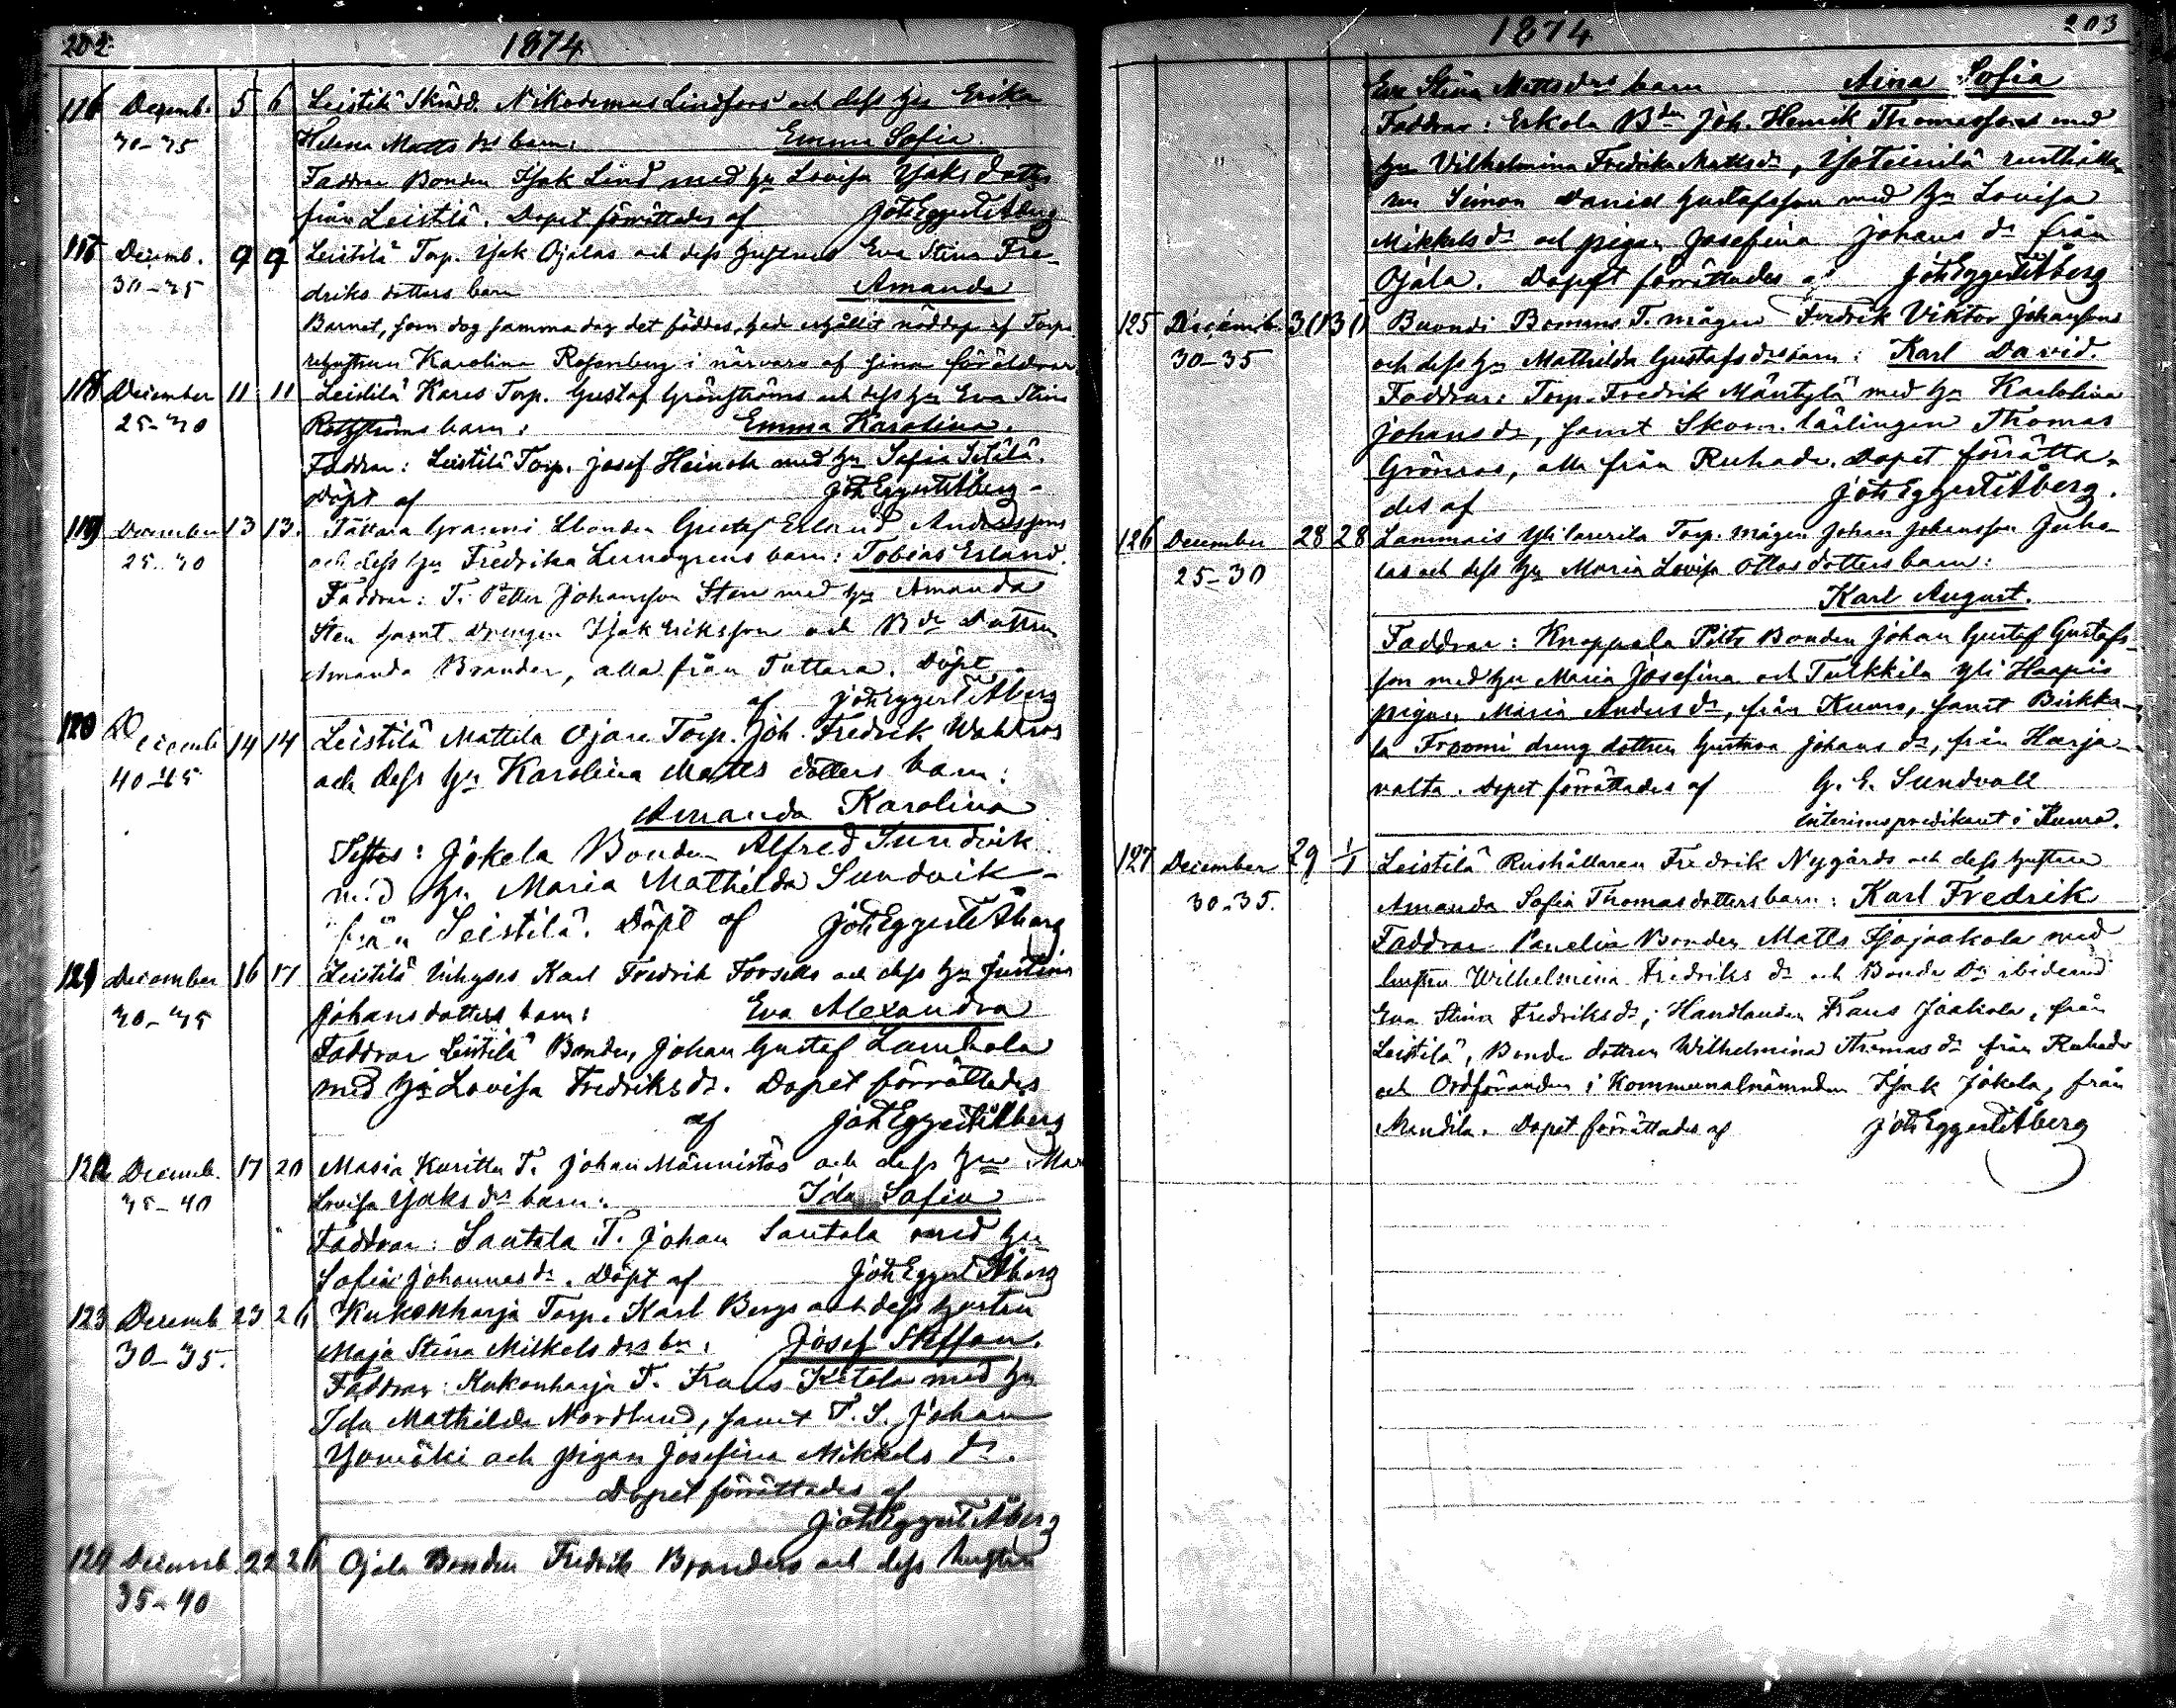 202
1874
116 Decemb. 5 6 Leistilä Skrädd. Nikodemus Lindfors och dess hu Erika
30-35 Helena Matts drs barn: Emma Sofia
Faddrar Bonden Isak Lind med hu Lovisa Isaks dotter
från Leistilä. Dopet förrättades af Joh Eggert Åberg
Decemb. 9 9 Leistilä Torp. Isak Ojalas och dess hustrus Eva Stina Fre-
30-35 driks dotters barn Amanda
Barnet, som dog samma dag det föddes, had erhållit nöddop af Torpa-
rehustrun Karolina Rosenberg i närvaro af sina föräldrar
118 December 11 11 Leistilä Kares Torp. Gustaf Grönströms och dess hu Eva Stina
25-30 barn: Emma Karolina.
Faddrar: Leistilä Torp. Josef Heinola med hu Sofia
Döpt af Joh Eggert Åberg
119 December 13 13. Tattara Grammi Lbonden Gustaf Erland Anderssons
25-30 och dess hu Fredrika Lundgrens barn: Tobias Erland.
Faddrar: T. Petter Johansson Sten med hu Amanda
Sten samt drengen Isak Eriksson och Bde Dottren
Amanda Brander, alla från Tattara. Döpt
af Joh Eggert Åberg
120 Decemb 14 14 Leistilä Mattila Ojare Torp. Joh. Fredrik Wahlros
40-45 och dess hu Karolina Matts dotters barn:
Amanda Karolina
Testes: Jokela Bonden Alfred Sundvik
med hu Maria Mathilda Sundvik
från Leistilä. Döpt af Joh Eggert Åberg
121 December 16 17 Leistilä Inhyses Karl Fredrik Forsells och dess hu Justina
30-35 Johans dotters barn: Eva Alexandra
Faddrar Leistilä Bonden, Johan Gustaf Lambola
med hu Lovisa Fredriks dr. Dopet förrättades
af Joh Eggert Åberg
122 Decemb. 17 20 Masia Kuritta T. Johan Männistös och dess hu Mar
35-40 Lovisa Isaks drs barn: Ida Sofia
Faddrar: Santala T. Johan Santala med hu
Sofia Johannes dr. Döpt af Joh Eggert Åberg
123 Decemb 23 26 Kukonharja Torp. Karl Bergs och dess hustru
30-35. Maja Stina Mikkels drs bn: Josef Steffan.
Faddrar: Kukonharja T. Frans Ketola med hu
Ida Mathilda Nordlund, samt T. S. Johan
och pigan Josefina Mikkels dr.
Dopet förrättades af
Joh Eggert Åberg
124 Decemb 22 26 Ojala Bonden Fredrik Branders och dess hustru
35-40
1874
203
Eva Stina Matts drs barn Aina Sofia
Faddrar: Erkola Bden Joh. Henrik Thomasson med
hu Vilhelmina Fredrika Matts dr, Isoteinilä rusthålla-
ren Simon David Gustafsson med hu Lovisa
Mikkels dr och pigan Josefina Johans dr från
Ojala. Dopet förrättades af Joh Eggert Åberg
125 Decemb. 30 30 Bomms T. mågen Fredrik Viktor Johansons
30-35 och dess hu Mathilda Gustafs drs barn: Karl David.
Faddrar: Torp. Fredrik Mäntylä med hu Karolina
Johans dr, samt Skom. lärlingen Thomas
Grönros, alla från Ruhade. Dopet förrätta-
des af Joh Eggert Åberg.
126 December 28 28 Lammais Yli Torp. mågen Johan Johansson Juho-
25-30 las och dess hu Maria Lovisa Ottos dotters barn:
Karl August.
Faddrar: Knoppala Pilts Bonden Johan Gustaf Gustafs-
son med hu Maria Josefina och Tulkkila Yli Haapio
pigan Maria Anders dr, från Kumo, samt Birkka-
la Froomi dreng dottren Gustava Johans dr, från Harja-
valta. Dopet förrättades af G. E. Sundvall
interimspredikant i Kumo.
127 December 29 1/1 Leistilä Rushållaren Fredrik Nygårds och dess hustru
30-35. Amanda Sofia Thomas dotters barn: Karl Fredrik
Faddrar Panelia Bonden Matts Isojaakola med
hustru Wilhelmina Fredriks dr och Bonde Dr ibidem
Eva Stina Fredriks dr; Handlanden Frans Jaakola, från
Leistilä, Bonde dottren Wilhelmina Thomas dr från Ruhade
och Ordföranden i Kommunalnämnden Isak Jokela, från
Dopet förrättades af Joh Eggert Åberg